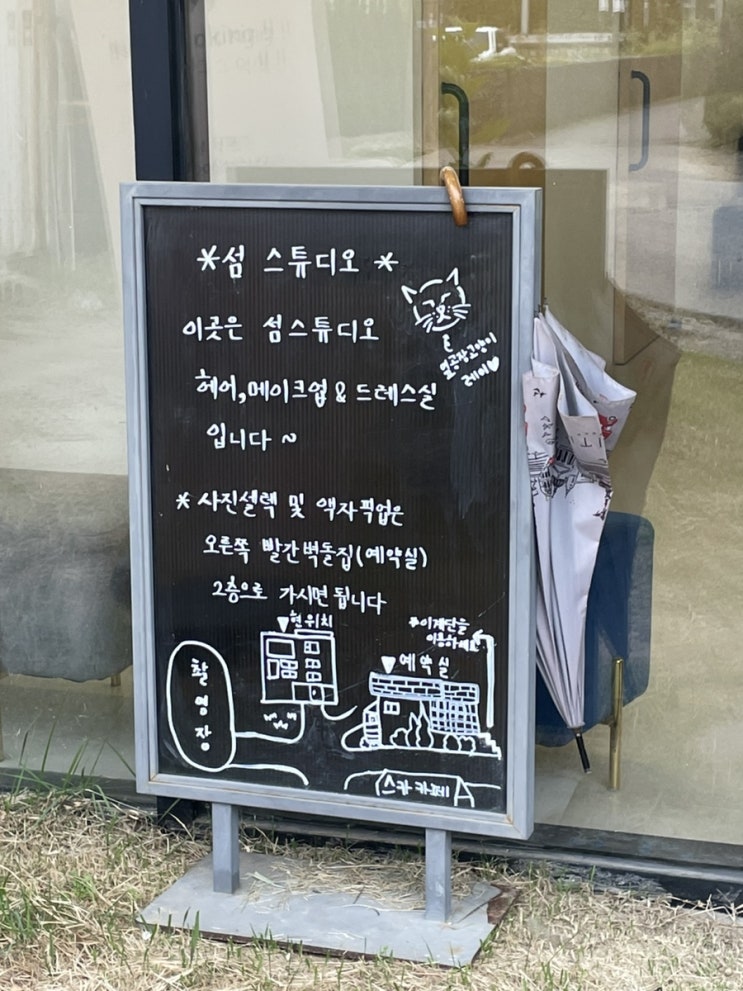 *섬 스튜디오 *
이곳은 섬스튜디오
헤어,메이크업 & 드레스실
입니다 ~
열공장고양이
레이♡
* 사진셀렉 및 액자픽업은
오른쪽 빨간벽돌집(예약실)
2층으로 가시면 됩니다
▼현위치
*이계단을
이용하세요
▼예약실
촬영장
스카 카페